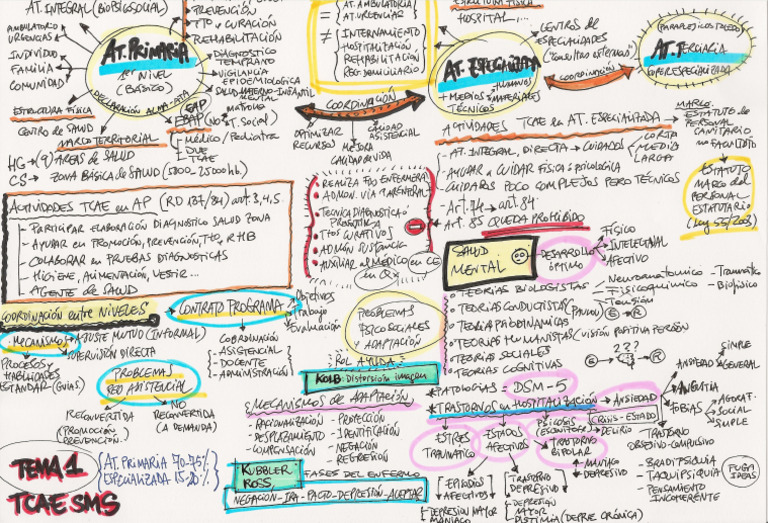 AT. INTEGRAL (BIOPSICOSOCIAL)
AMBULATORIO
URGENCIAS
INDIVIDUO
FAMILIA
COMUNIDAD
AT. PRIMARIA
1er NIVEL
(BÁSICO)
DECLARACIÓN ALMA-ATA
PREVENCIÓN
TTO Y CURACIÓN
REHABILITACIÓN
DIAGNOSTICO
TEMPRANO
VIGILANCIA
EPIDEMIOLOGICA
SALUD MATERNO-INFANTIL
MENTAL
ESTRUCTURA FÍSICA
CENTRO DE SALUD
MARCO TERRITORIAL
EAP
EBAP (NO T. SOCIAL)
MÉDICO / PEDIATRA
DUE
TCAE
HG → (9) AREAS DE SALUD
CS → ZONA BÁSICA DE SALUD (5000-25000 hb.)
= AT. AMBULATORIA
AT. URGENCIAS
≠ INTERNAMIENTO
HOSPITALIZACIÓN
REHABILITACIÓN
HOSP. DOMICILIARIO
COORDINACIÓN
OPTIMIZAR
RECURSOS
MEJORA
CALIDAD VIDA
CALIDAD
ASISTENCIAL
ESTRUCTURA FÍSICA
HOSPITAL...
AT. ESPECIALIZADA
+ MEDIOS
HUMANOS
MATERIALES
TÉCNICOS
CENTROS DE
ESPECIALIDADES
"CONSULTAS EXTERNAS"
COORDINACIÓN
(PARAPLEJICOS TOLEDO)
AT. TERCIARIA
SUPERESPECIALIZADA
ACTIVIDADES TCAE EN AT. ESPECIALIZADA
MARCO
ESTATUTO DE
PERSONAL
SANITARIO
NO FACULTATIVO
- AT. INTEGRAL, DIRECTA → CUIDADOS
CORTA
MEDIA
LARGA
- AYUDAR A CUIDAR FÍSICA & PSICOLOGICA
- CUIDADOS POCO COMPLEJOS PERO TÉCNICOS
- Art. 74 → art. 84
- Art. 85 QUEDA PROHIBIDO
ESTATUTO
MARCO DEL
PERSONAL
ESTATUTARIO
(Ley 55/2003)
ACTIVIDADES TCAE EN AP (RD 137/84) art. 3, 4, 5
- PARTICIPAR ELABORACIÓN DIAGNOSTICO SALUD ZONA
- AYUDAR EN PROMOCIÓN, PREVENCIÓN, TTO, RHB
- COLABORAR EN PRUEBAS DIAGNOSTICAS
- HIGIENE, ALIMENTACIÓN, VESTIR...
- AGENTE DE SALUD
REALIZA TTOS ENFERMERÍA
ADMON. VÍA PARENTERAL
TECNICA DIAGNOSTICO
TTOS CURATIVOS
ADMÓN SUSTANCIA
AUXILIAR AL MÉDICO
EN CE
EN QX
SALUD
MENTAL
DESARROLLO
ÓPTIMO
FÍSICO
INTELECTUAL
AFECTIVO
TEORIAS BIOLOGISTAS
NEUROANATOMICO
FISICOQUIMICO
TENSIÓN
- TRAUMÁTICO
- BIOFÍSICO
TEORIAS CONDUCTISTAS (PAVLOV) E → R
TEORIA PSICODINAMICAS
TEORIAS HUMANISTAS (VISIÓN POSITIVA PERSONA)
TEORIAS SOCIALES
TEORIAS COGNITIVAS
E → ??? → R
COORDINACIÓN ENTRE NIVELES
MECANISMOS
AJUSTE MUTUO (INFORMAL)
SUPERVISIÓN DIRECTA
PROCESOS Y
HABILIDADES
ESTANDAR (GUÍAS)
CONTRATO PROGRAMA
Objetivos
Trabajo
Evaluación
COORDINACIÓN
- ASISTENCIAL
- DOCENTE
- ADMINISTRACIÓN
PROBLEMAS
RED ASISTENCIAL
RECONVERTIDA
(PROMOCIÓN
PREVENCIÓN)
NO
RECONVERTIDA
(A DEMANDA)
PROBLEMAS
PSICOSOCIALES
Y ADAPTACIÓN
ROL AYUDA
KOLB: Distorsión imagen
MECANISMOS DE ADAPTACIÓN
- RACIONALIZACIÓN
- DESPLAZAMIENTO
- COMPENSACIÓN
- PROYECCIÓN
- IDENTIFICACIÓN
- NEGACIÓN
- REGRESIÓN
KUBBLER
ROSS
FASES DEL ENFERMO
NEGACION-IRA-PACTO-DEPRESIÓN-ACEPTAR
*PATOLOGIAS = DSM-5
*TRASTORNOS EN HOSPITALIZACIÓN
ANSIEDAD
CRISIS-ESTADO
ANSIEDAD
SIMPLE
GENERAL
ANGUSTIA
FOBIAS
AGORAF.
SOCIAL
SIMPLE
TRASTORNO
OBSESIVO-COMPULSIVO
ESTRES
TRAUMATICO
ESTADOS
AFECTIVOS
PSICOSIS
→ DELIRIO
TRASTORNO
BIPOLAR
MANIACO
DEPRESIVO
EPISODIOS
AFECTIVOS
- DEPRESION MAYOR
MANIACO
TRASTORNO
DEPRESIVO
- DEPRESIÓN
MAYOR
- DISTIMIA (DEPRE CRÓNICA)
- BRADIPSIQUIA
- TAQUIPSIQUIA
- PENSAMIENTO
INCOHERENTE
FUGA
IDEAS
TEMA 1
TCAE SMS
AT. PRIMARIA 70-75%
ESPECIALIZADA 15-20%